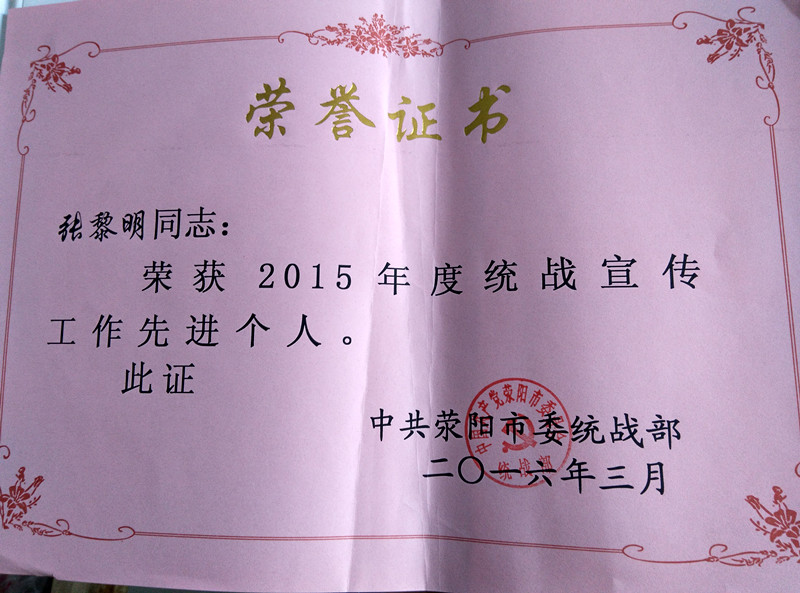 荣誉证书
张黎明同志：
荣获2015年度统战宣传
工作先进个人。
此证
中共荥阳市委统战部
二〇一六年三月
统战部